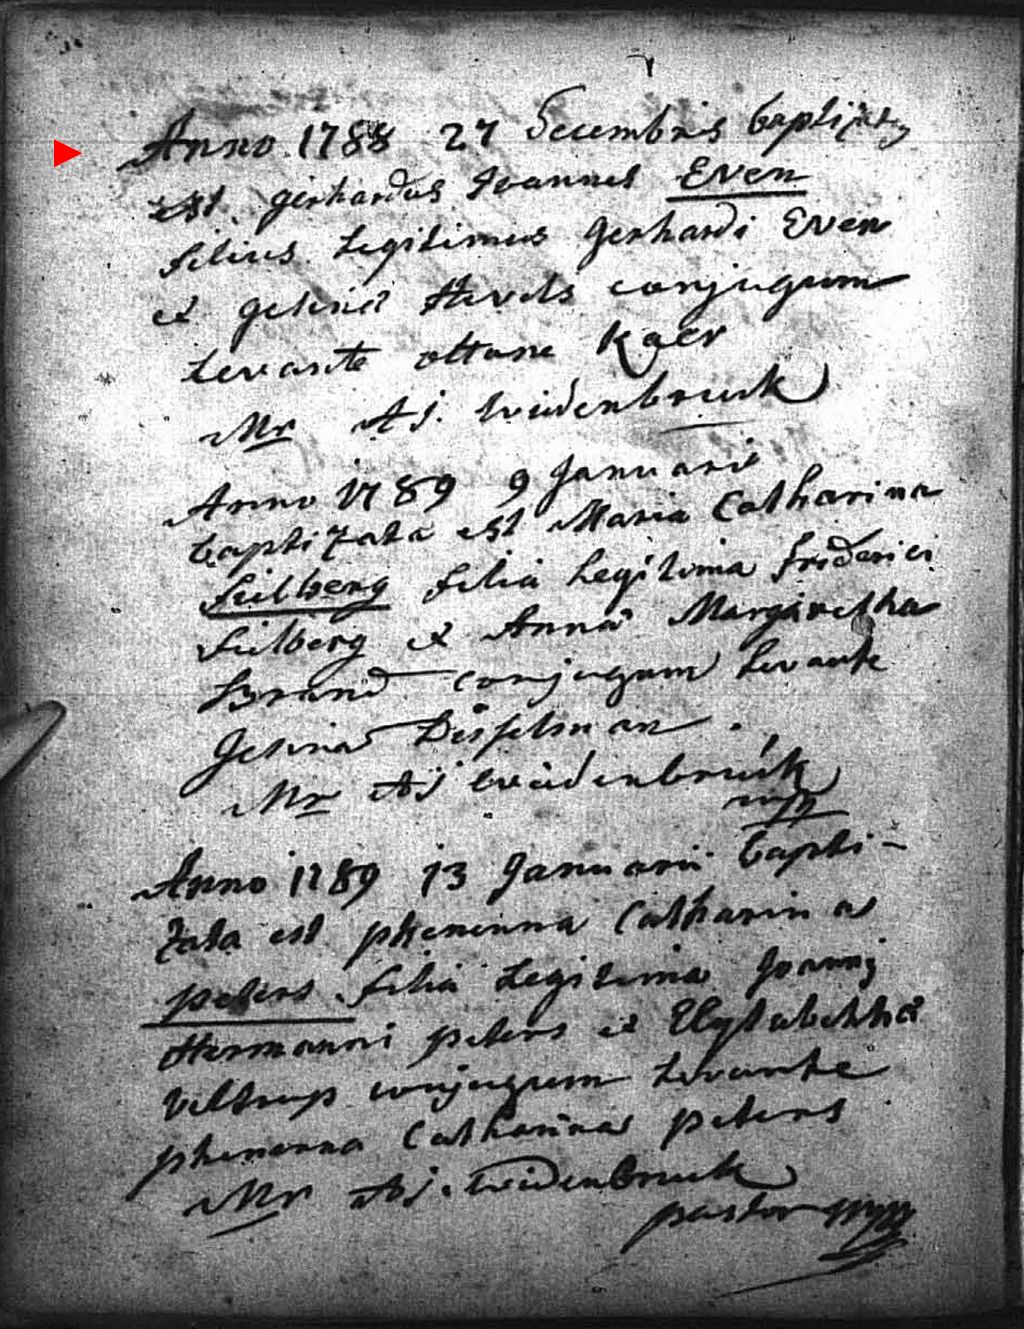 Anno 1788 27 Decembris baptizatus
est gerhardus Joannes Even
filius Legitimus gerhardi Even
et gesina Hevels conjugum
Levante Kaer
Mr Aj. Widenbruck
Anno 1789 9 Januarii
baptizata est Maria Catharina
Feilberg filia Legitima friderici
Feilberg et Anna Margaretha
Brand conjugum Levante
Gesina Disselman
Mr Aj Widenbruck
mpp
Anno 1789 13 Januarii bapti-
zata est phenenna Catharina
peters filia Legitima Joannis
Hermanni peters et Elysabethha
Veltrup conjugum Levante
phenenna Catharina peters
Mr Aj. Widenbruck
pastor mpp